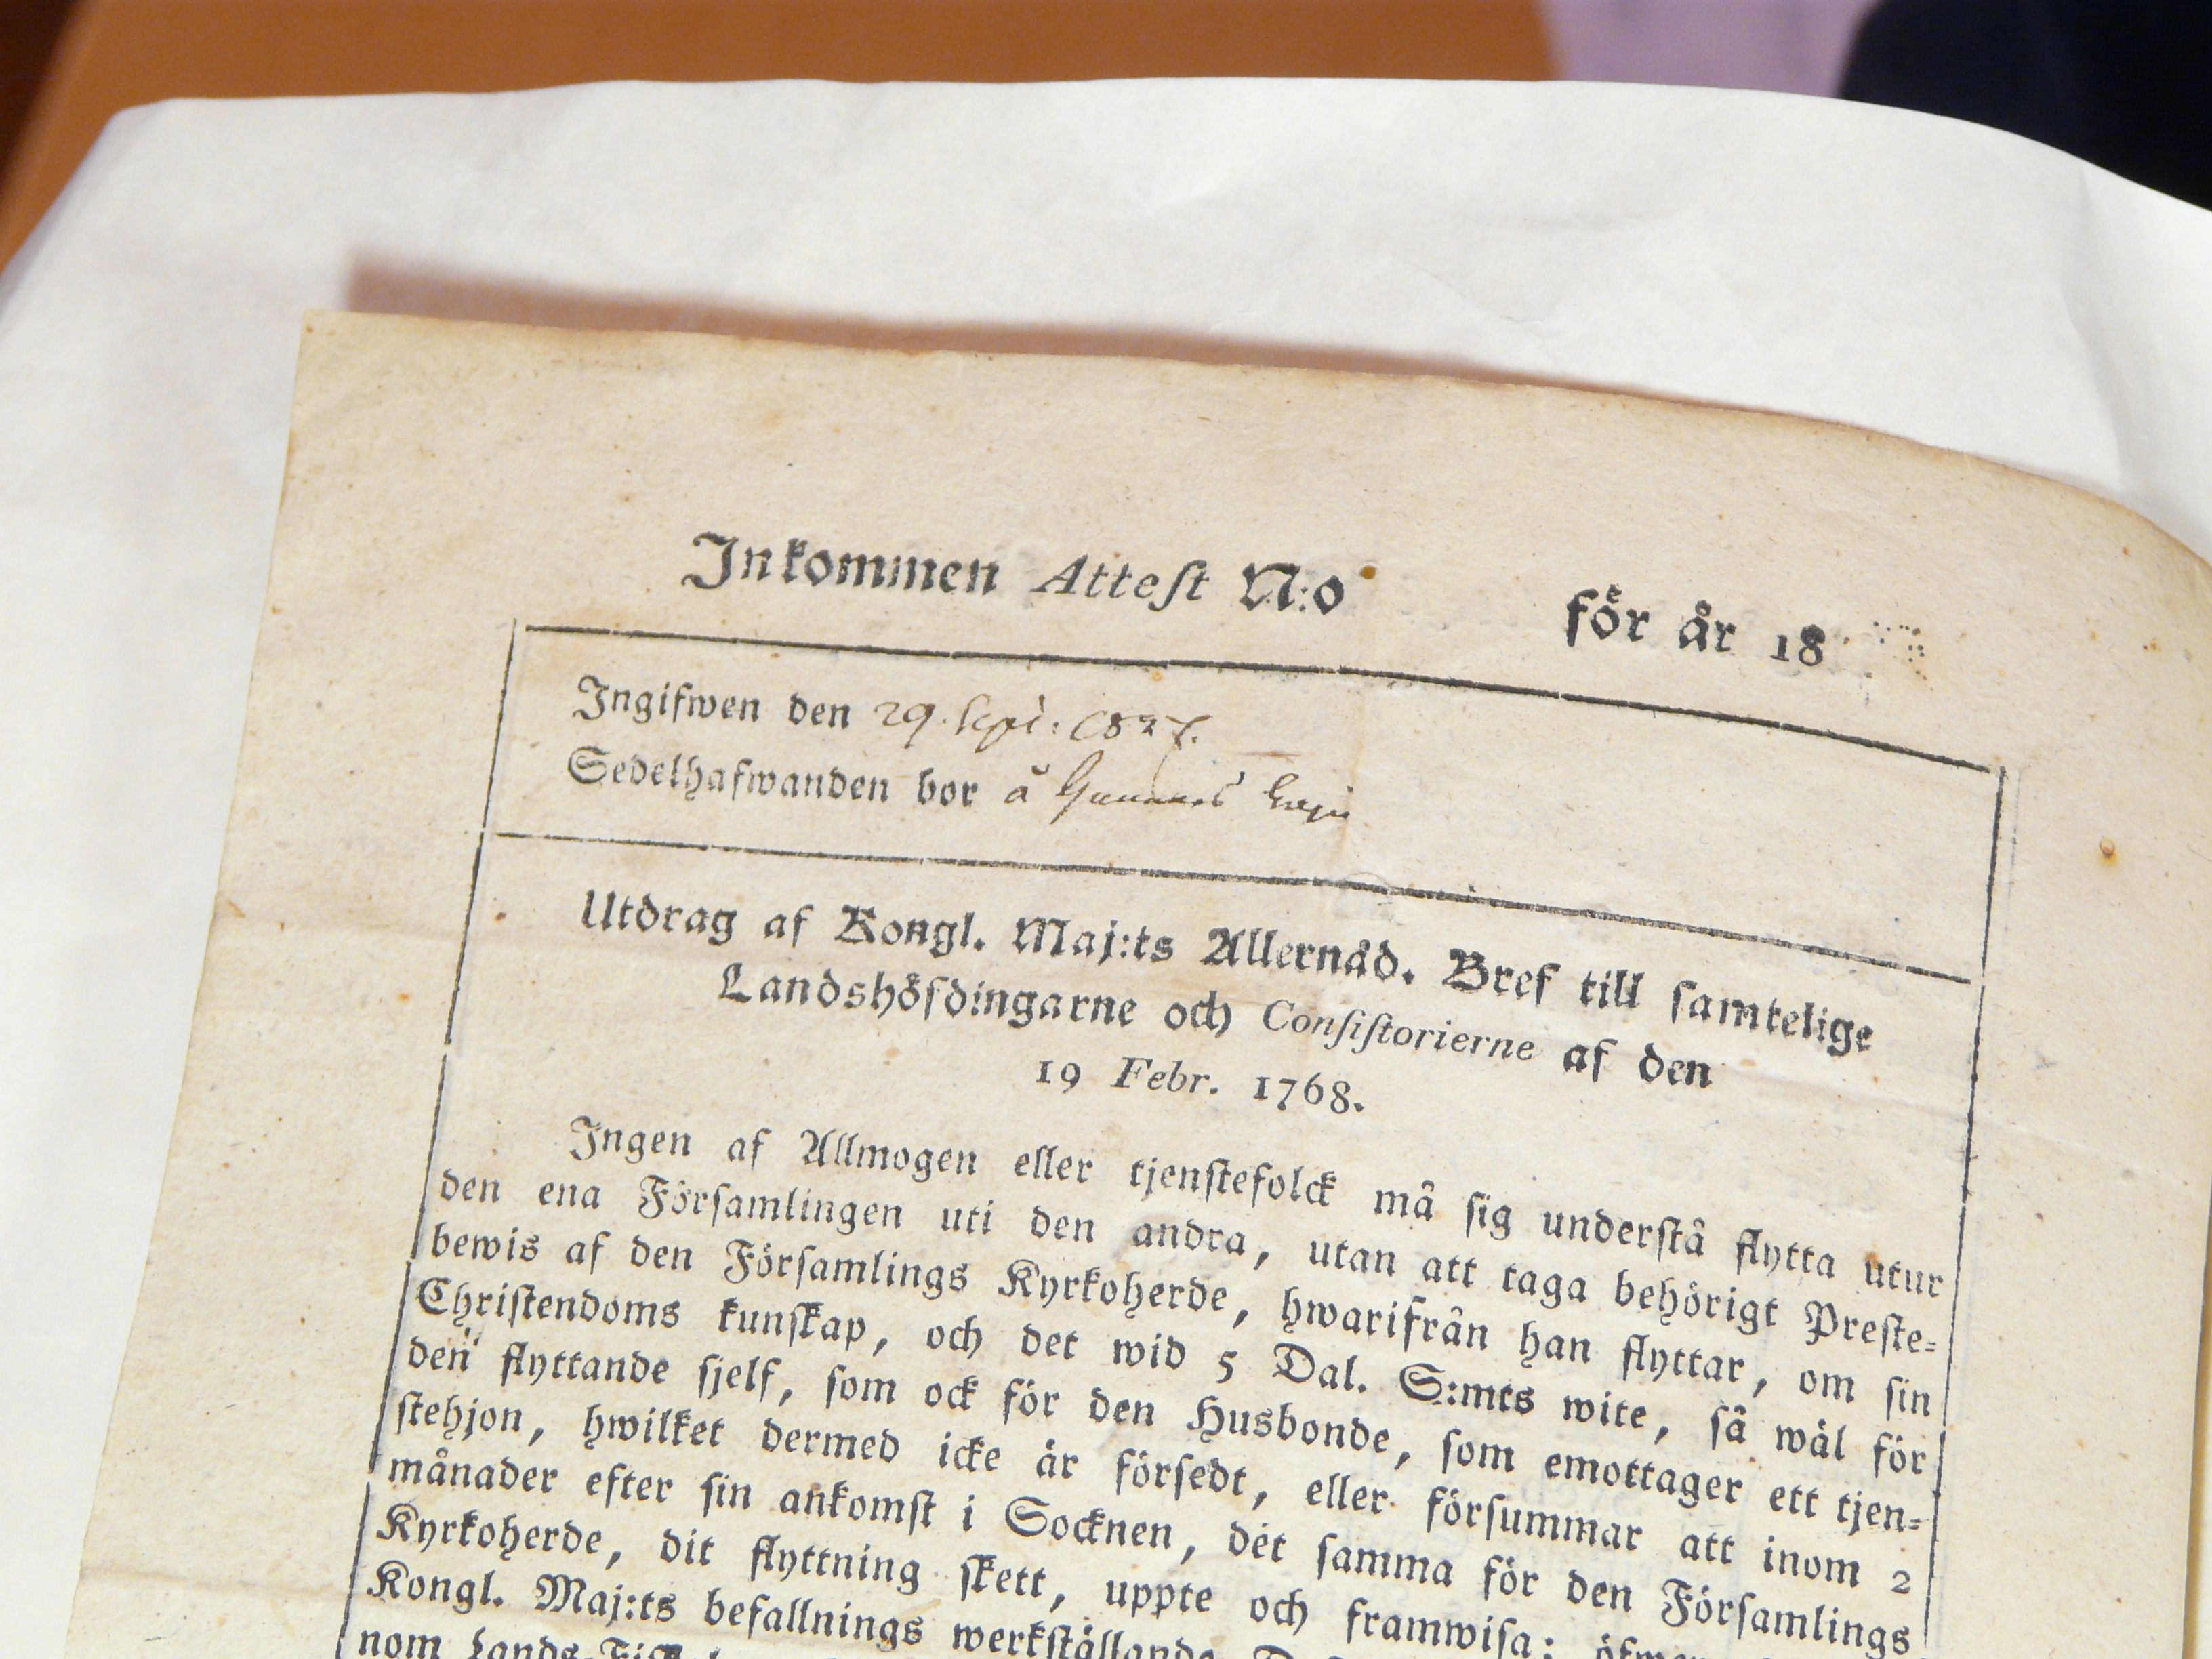 Inkommen Attest N:o för år 18
Ingifwen den 29. Sept: 1827.
Sedelhafwanden bor å
Utdrag af Kongl. Maj:ts Allernåd. Bref till samtelige
Landshöfdingarne och Consistorierne af den
19 Febr. 1768.
Ingen af Allmogen eller tjenstefolck må sig understå flytta utur
den ena Församlingen uti den andra, utan att taga behörigt Preste-
bewis af den Församlings Kyrkoherde, hwarifrån han flyttar, om sin
Christendoms kunskap, och det wid 5 Dal. S:mts wite, så wäl för
den flyttande sjelf, som ock för den Husbonde, som emottager ett tjen-
stehjon, hwilket dermed icke är försedt, eller försummar att inom 2
månader efter sin ankomst i Socknen, det samma för den Församlings
Kyrkoherde, dit flyttning skett, uppte och framwisa;
Kongl. Maj:ts befallnings werkställande
nom Lands-